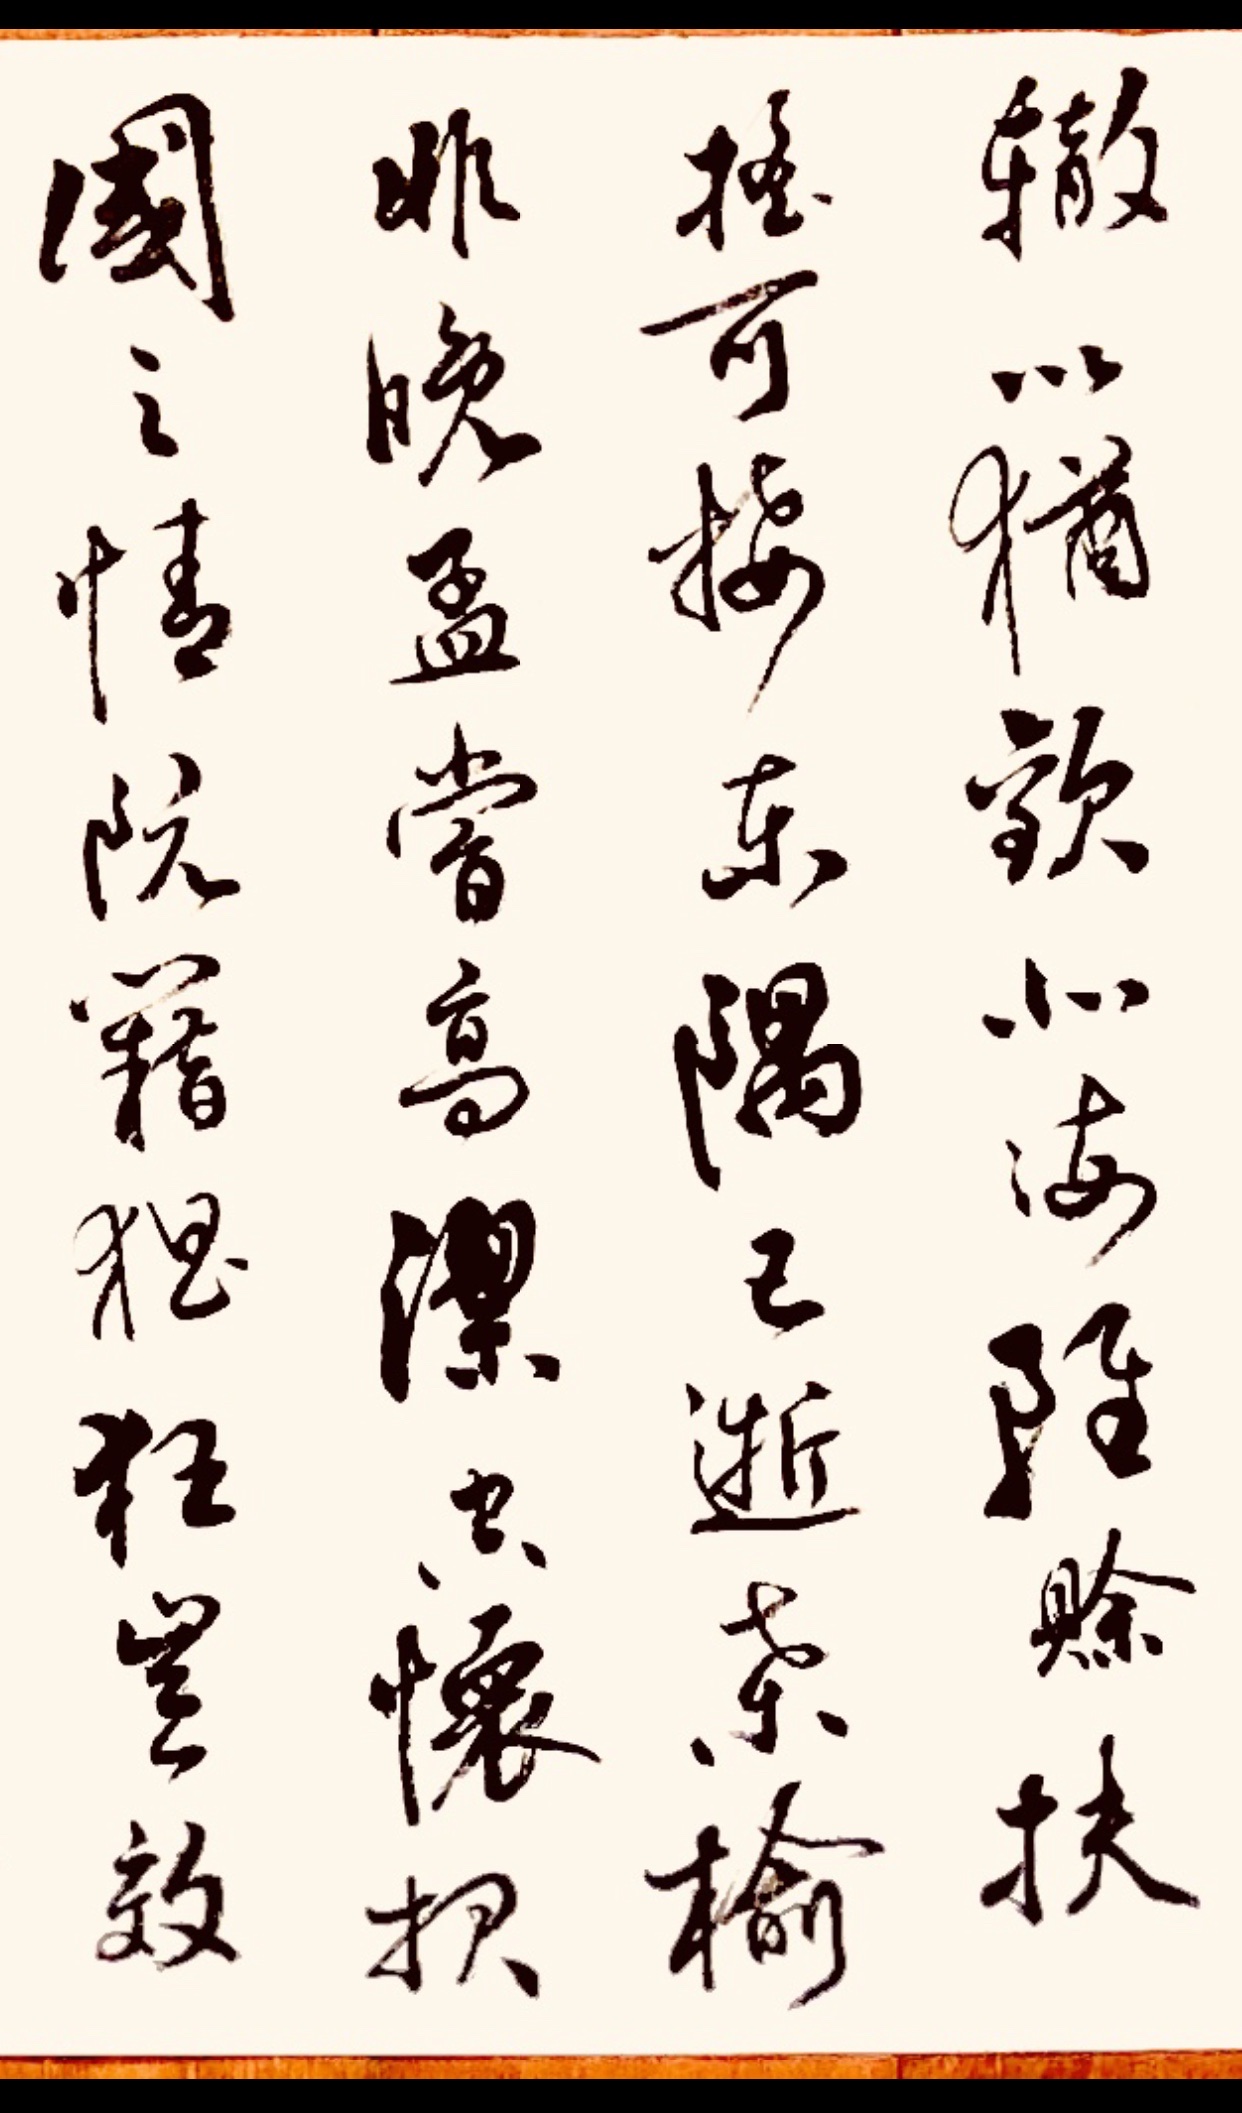 轍以猶歡北海雖賒扶
搖可接東隅已逝桑榆
非晚孟嘗高潔空懷报
國之情阮籍猖狂豈效